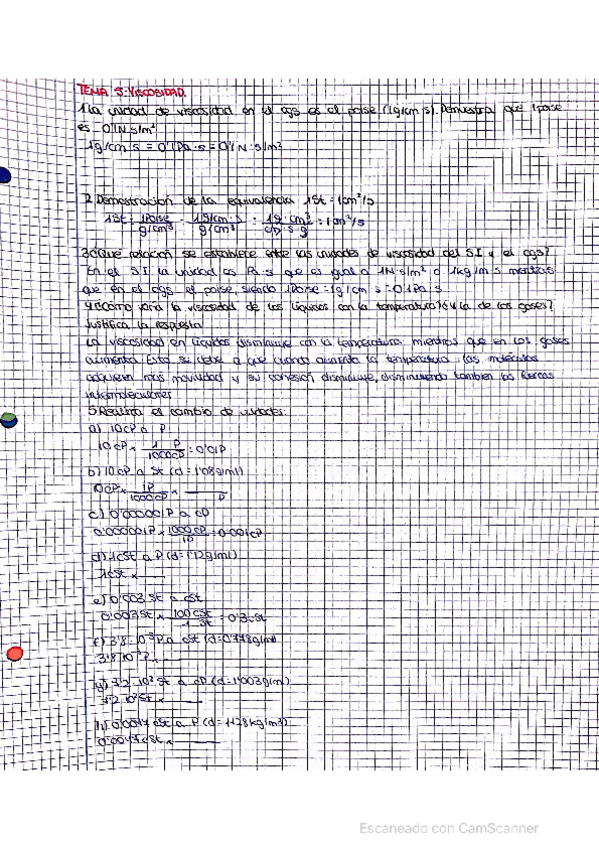 TEMA 5: VISCOSIDAD.
1. La unidad de viscosidad en el cgs es el poise (1g/cm·s). Demuestra que 1poise
es 0'1N·s/m²
1g/cm·s = 0'1Pa·s = 0'1N·s/m²
2. Demostración de la equivalencia 1St = 1cm²/s
1St = 1Poise / g/cm³ = 1g/cm·s / g/cm³ = 1g·cm³ / cm·s·g = 1cm²/s
3. ¿Qué relación se establece entre las unidades de viscosidad del S.I y el cgs?
En el S.I la unidad es Pa·s que es igual a 1N·s/m² o 1kg/m·s mientras
que en el cgs el poise, siendo 1Poise = 1g/cm·s = 0'1Pa·s
4. ¿Cómo varía la viscosidad de los líquidos con la temperatura? ¿Y la de los gases?
Justifica la respuesta
La viscosidad en líquidos disminuye con la temperatura mientras que en los gases
aumenta. Esto se debe a que cuando aumenta la temperatura, las moléculas
adquieren más movilidad y su cohesión disminuye, disminuyendo también las fuerzas
intermoleculares
5. Realiza el cambio de unidades:
a) 10cP a P
10cP × 1 P / 1000cP = 0'01P
b) 10cP a St (d = 1'08g/ml)
10cP × 1P / 1000cP × / P
c) 0'000001P a cP
0'000001P × 1000cP / 1P = 0'001cP
d) 1cSt a P (d = 1'12g/ml)
1cSt ×
e) 0'003 St a cSt
0'003St × 100cSt / 1 St = 0'3cSt
f) 3'8·10⁻³P a cSt (d = 0'778g/ml)
3'8·10⁻³P ×
g) 7'2·10² St a cP (d = 1'003g/ml)
7'2·10²St ×
h) 0'0047 cSt a P (d = 1128kg/m³)
0'0047cSt ×
Escaneado con CamScanner